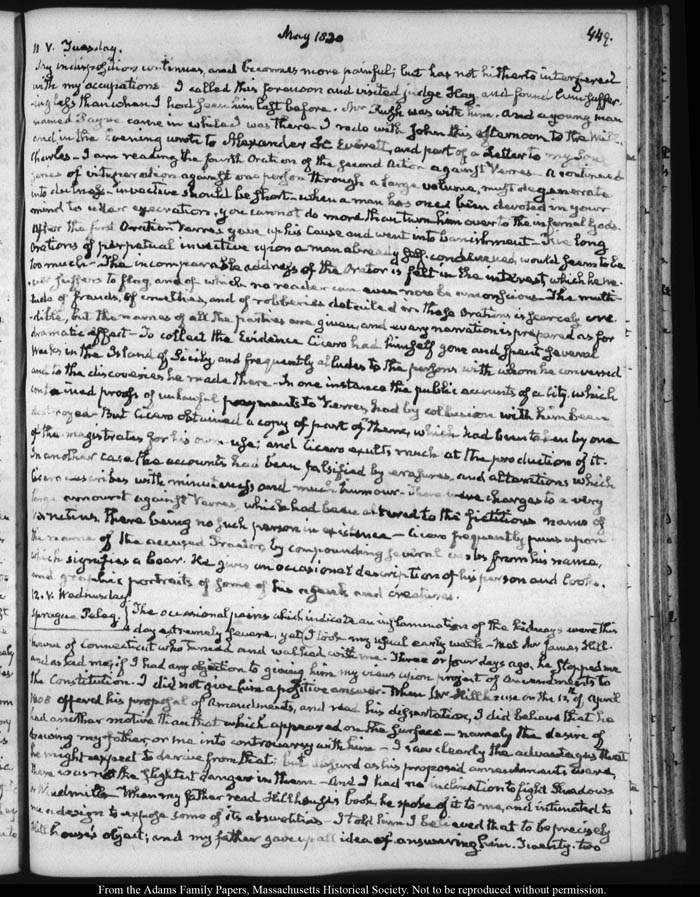 May 1830
449.
11 V. Tuesday.
My indisposition continues, and becomes more painful; but has not hitherto interfered
with my occupations. I called this forenoon and visited judge Hay and found him suffer-
-ing less than when I had seen him last before. Mr Rush was with him. And a young man
named Bayne came in while I was there. I rode with John this afternoon to the Mill
and in the Evening wrote to Alexander H. Everett, and part of a Letter to my Son
Charles. I am reading the fourth Oration of the second Action against Verres. A continued
series of vituperation against one person through a large volume, must degenerate
into dulness. Invective should be short. When a man has once been devoted in your
mind to utter execration, you cannot do more than turn him over to the infernal Gods.
After the first Oration Verres gave up his Cause and went into banishment. Five long
Orations of perpetual invective upon a man already self condemned, would seem to be
too much. The incomparable address of the Orator is felt in the interest, which he ne-
-ver suffers to flag, and of which no reader can even now be unconscious. The multi-
-tude of frauds, of cruelties, and of robberies detailed in these Orations is scarcely cre-
-dible, but the names of all the parties are given, and every narration is prepared as for
dramatic effect. To collect the Evidence Cicero had himself gone and spent several
Weeks in the Island of Sicily and frequently alludes to the persons with whom he conversed
and to the discoveries he made there. In one instance the public accounts of a City, which
contained proofs of unlawful payments to Verres, had by collusion with him been
destroyed. But Cicero obtained a copy of part of them, which had been taken by one
of the magistrates for his own use; and Cicero exults much at the production of it.
In another case the accounts had been falsified by erasures, and alterations which
Cicero describes with minuteness and much humour. There were charges to a very
large amount against Verres, which had been altered to the fictitious name of
Verrutius, there being no such person in existence. Cicero frequently puns upon
the name of the accused Praetor, by compounding several words from his name,
which signifies a boar. He gives an occasional description of his person and looks,
and graphic portraits of some of his agents and creatures.
12. V. Wednesday
Sprague Peleg
The occasional pains which indicate an inflammation of the kidneys were this
day extremely severe, yet I took my usual early walk. Met Mr James Hill-
house of Connecticut who turned and walked with me. Three or four days ago, he stopped me
and asked me, if I had any objection to giving him my views upon project of amendments to
the Constitution. I did not give him a positive answer. When Mr Hillhouse on the 12th of April
1808 offered his proposal of Amendments, and read his dissertation, I did believe that he
had another motive than that which appeared on the surface. namely the desire of
drawing my father, or me into controversy with him. I saw clearly the advantages that
he might expect to derive from that; but absurd as his proposed amendments were,
there was not the slightest danger in them. And I had no inclination to fight Shadows
or Windmills. When my father read Hillhouse's book he spoke of it to me, and intimated to
me a design to expose some of its absurdities. I told him I believed that to be precisely
Hillhouse's object; and my father gave up all idea of answering him. Twenty-two
From the Adams Family Papers, Massachusetts Historical Society. Not to be reproduced without permission.